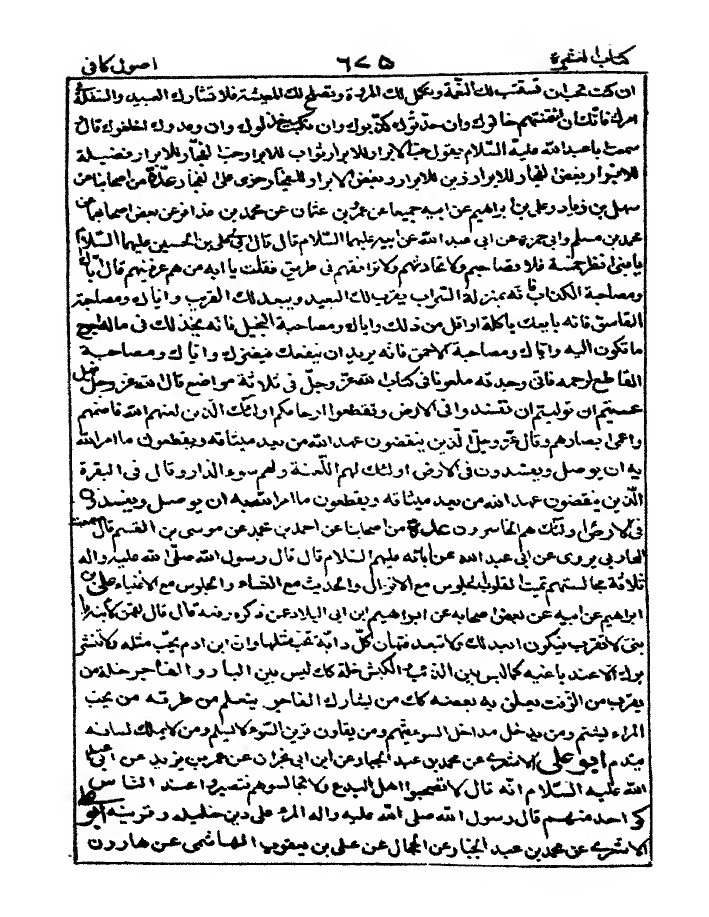 كتاب العشرة ٦٧٥ اصول كافى
ان كنت تحب ان تستتب لك النعمة وتكمل لك المروة وتصلح لك المعيشة فلا تشارك العبيد والسفلة فى
امرك فانك ان ائتمنتهم خانوك وان حدثوك كذبوك وان نكبت خذلوك وان وعدوك اخلفوك قال
سمعت ابا عبد الله عليه السلام يقول حب الابرار للابرار ثواب للابرار وحب الفجار للابرار فضيلة
للابرار وبغض الفجار للابرار زين للابرار وبغض الابرار للفجار خزى على الفجار عدة من اصحابنا عن
سهل بن زياد وعلى بن ابراهيم عن ابيه جميعا عن عمرو بن عثمان عن محمد بن عذافر عن بعض اصحابهما عن
محمد بن مسلم وابى حمزة عن ابى عبد الله عن ابيه عليهما السلام قال قال لى على بن الحسين عليهما السلام
يا بنى انظر خمسة فلا تصاحبهم ولا تحادثهم ولا ترافقهم فى طريق فقلت يا ابه من هم عرفنيهم قال اياك
ومصاحبة الكذاب فانه بمنزلة السراب يقرب لك البعيد ويبعد لك القريب واياك ومصاحبة
الفاسق فانه بايعك باكلة او اقل من ذلك واياك ومصاحبة البخيل فانه يخذلك فى ماله احوج
ما تكون اليه واياك ومصاحبة الاحمق فانه يريد ان ينفعك فيضرك واياك ومصاحبة
القاطع لرحمه فانى وجدته ملعونا فى كتاب الله عز وجل فى ثلاثة مواضع قال الله عز وجل فهل
عسيتم ان توليتم ان تفسدوا فى الارض وتقطعوا ارحامكم اولئك الذين لعنهم الله فاصمهم
واعمى ابصارهم وقال عز وجل الذين ينقضون عهد الله من بعد ميثاقه ويقطعون ما امر الله
به ان يوصل ويفسدون فى الارض اولئك لهم اللعنة ولهم سوء الدار وقال فى البقرة
الذين ينقضون عهد الله من بعد ميثاقه ويقطعون ما امر الله به ان يوصل ويفسدون
فى الارض اولئك هم الخاسرون عدة من اصحابنا عن احمد بن محمد عن موسى بن القسم قال سمعت
المحاربى يروى عن ابى عبد الله عن آبائه عليهم السلام قال قال رسول الله صلى الله عليه واله
ثلاثة مجالستهم تميت القلوب الجلوس مع الانذال والحديث مع النساء والجلوس مع الاغنياء على بن
ابراهيم عن ابيه عن بعض اصحابه عن ابراهيم ابن ابى البلاد عن ذكره رفعه قال قال لقمن لابنه يا
بنى لا تقرب فيكون ابعد لك ولا تبعد فتهان كل دابة تحب مثلها وان ابن ادم يحب مثله ولا تنشر
بزك الا عند باغيه كما ليس بين الذئب والكبش خلة كك ليس بين البار والفاجر خلة من
يقترب من الزفت يعلق به بعضه كك من يشارك الفاجر يتعلم من طرقه من يحب
المراء يشتم ومن يدخل مداخل السوء يتهم ومن يقارن قرين السوء لا يسلم ومن لا يملك لسانه
يندم ابو على الاشعرى عن محمد بن عبد الجبار عن ابن ابى نجران عن عمر بن يزيد عن ابى عبد
الله عليه السلام انه قال لا تصحبوا اهل البدع ولا تجالسوهم فتصيروا عند الناس
كواحد منهم قال رسول الله صلى الله عليه واله المرء على دين خليله وقرينه ابو على
الاشعرى عن محمد بن عبد الجبار عن الحجال عن على بن يعقوب الهاشمى عن هارون